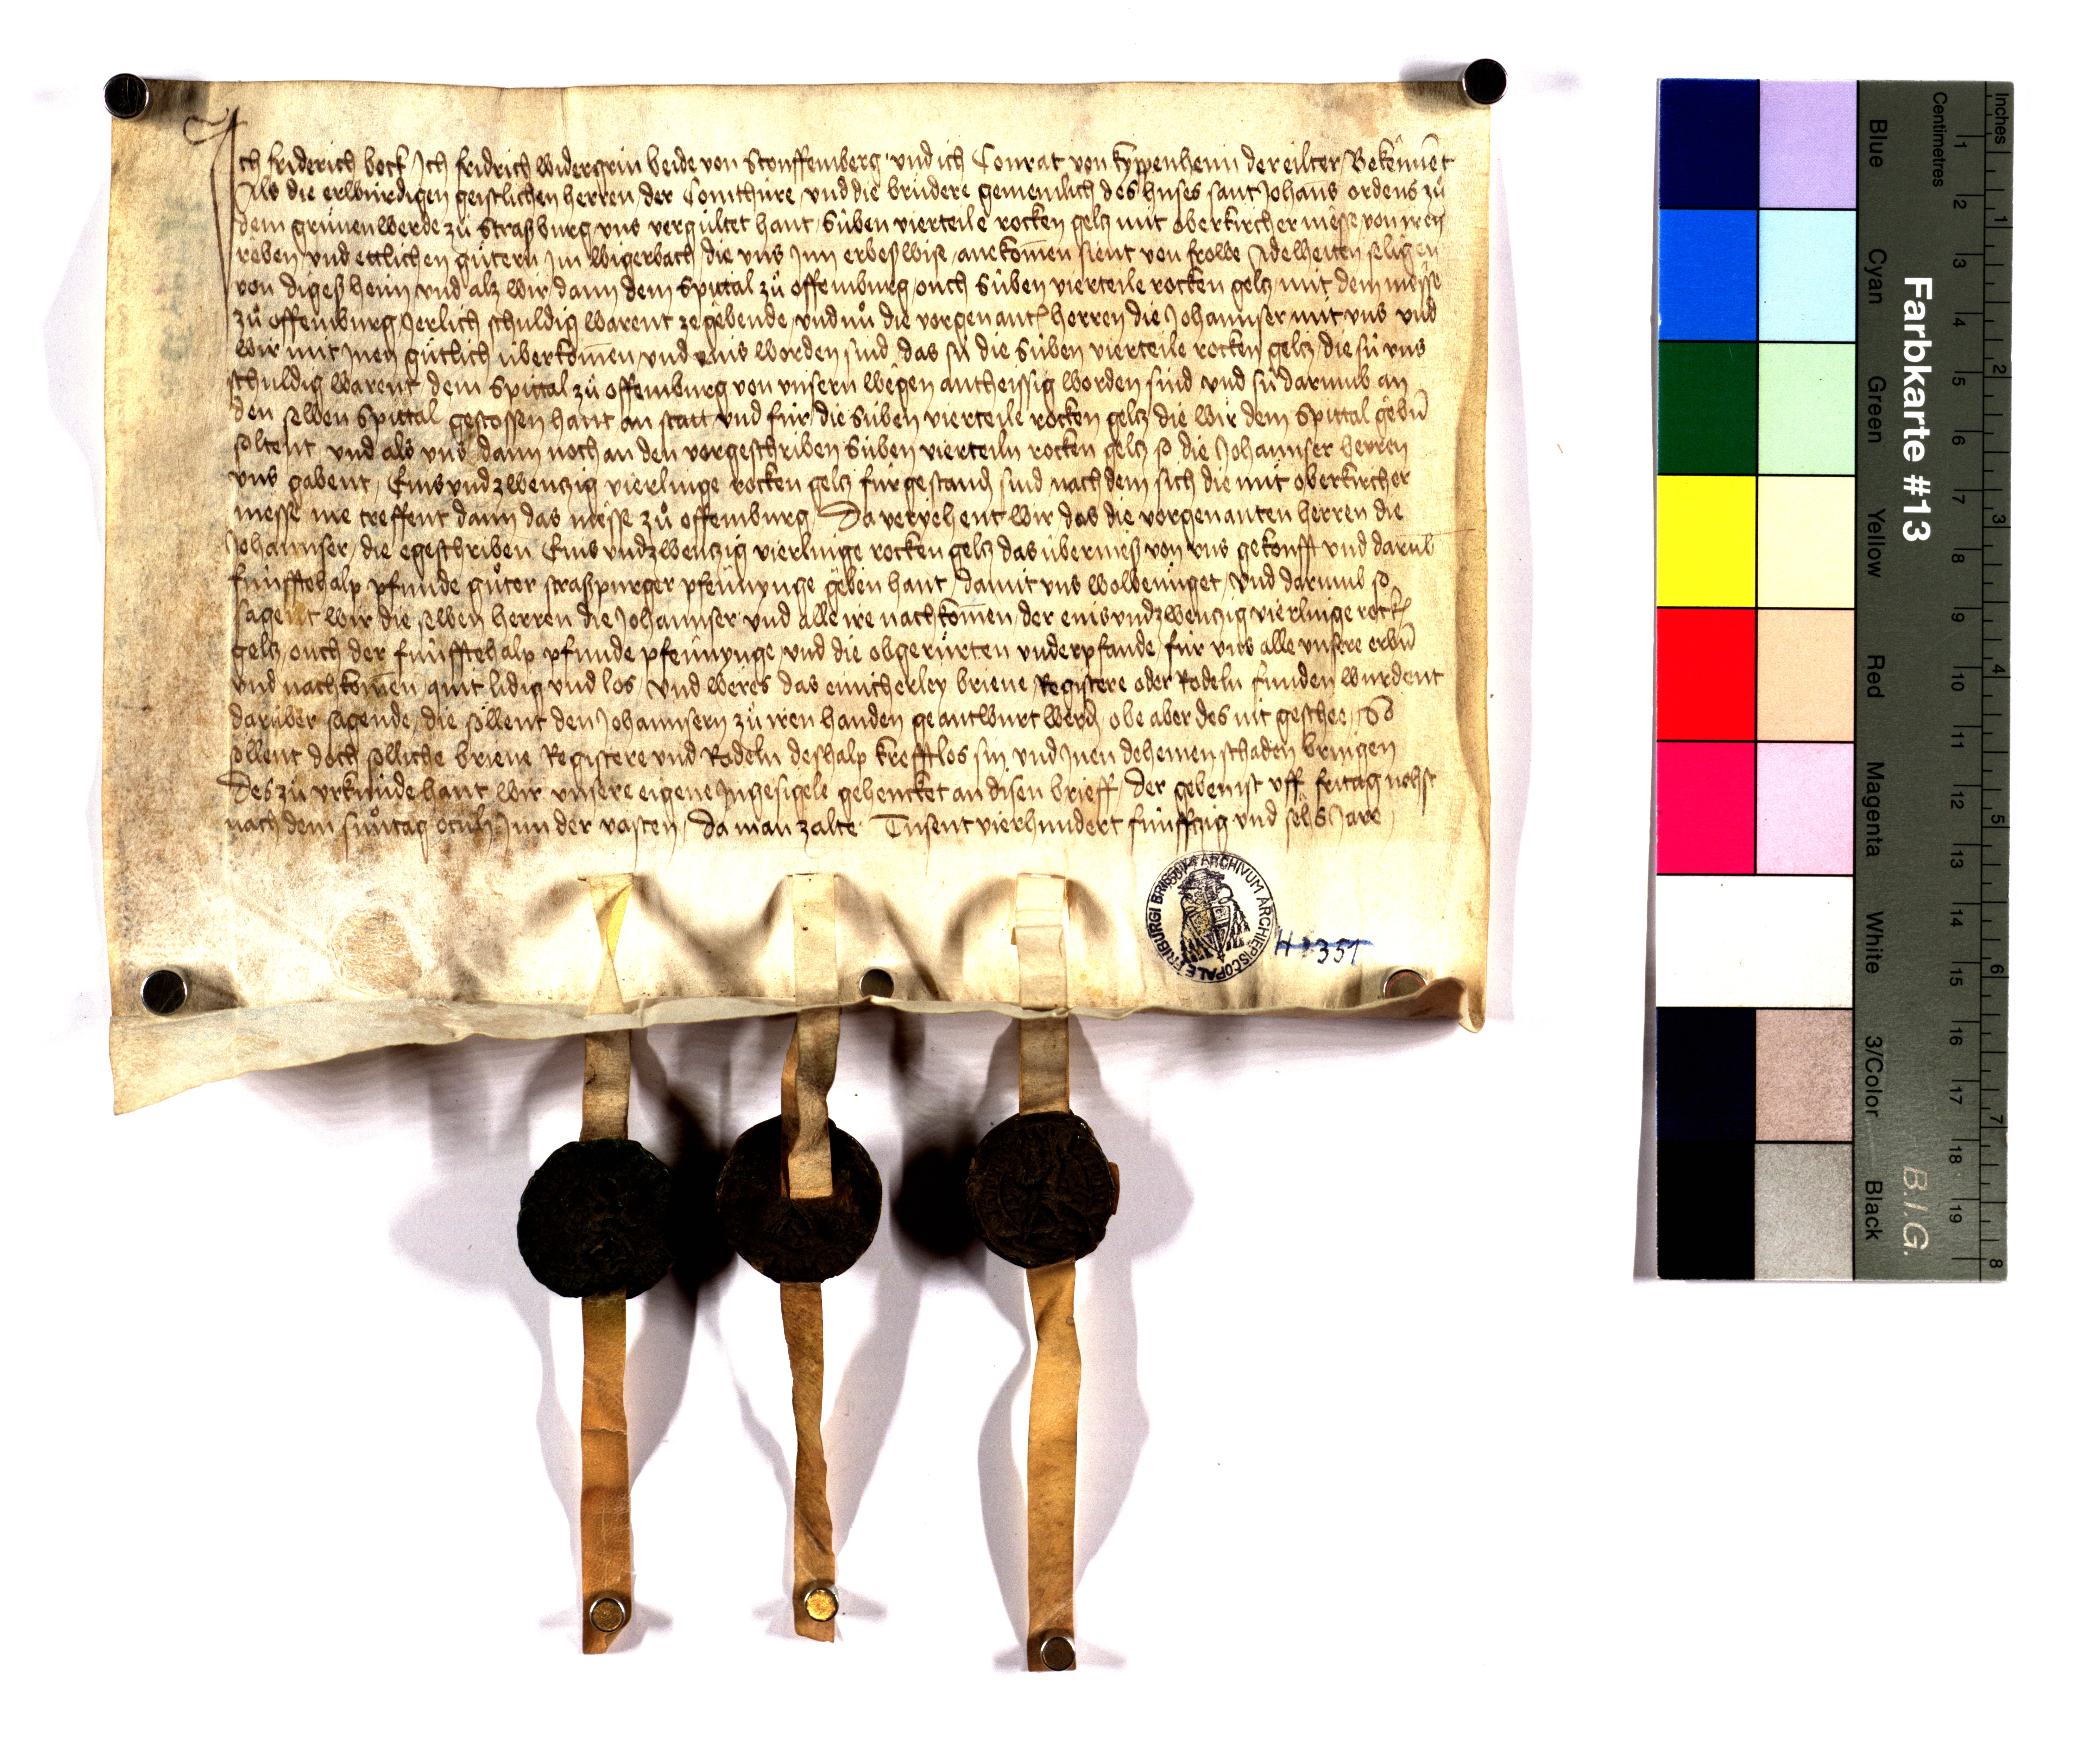 Ich Friderich bock Ich Fridrich widergrin beide von Stouffemberg vnd ich Conrat von kyppenheim der eilter Bekennēt
Als die erlwurdigen geistlichen herren der Comthure vnd die brudere gemeinlich des huses sant Johans ordens zů
dem grünenwerde zů Straßburg vns vergultet hant süben vierteile rocken geltz mit oberkircher messe von iren
reben vnd ettlichen gütern Im wigerbach die vns Inn erbeßwise anekom̄en sient von frowe Adelheiten seligen
von digeßheim vnd alz wir dann dem Spittal zů offemburg ouch süben vierteile rocken geltz mit dem messe
zů offemburg Jerlich schuldig warent ze gebende vnd nů die vorgenant herren die Johannser mit vns vnd
wir mit Inen gütlich überkom̄en vnd eins worden sind das sü die süben vierteile rocken geltz die sü vns
schuldig warent dem Spittal zů offemburg von vnsern wegen antheissig worden sind vnd sü darumb an
den selben Spittal gestossen hant an statt vnd für die süben vierteile rocken geltz die wir dem Spittal gebn̄
soltent vnd als vns dann noch an den vorgeschriben süben vierteiln rocken geltz so die Johannser herren
vns gabent Eins vnd zwentzig vierlinge rocken geltz fürgestand sind nach dem sich die mit oberkircher
messe me treffent dann das messe zů offemburg Da veriehent wir das die vorgenanten herren die
Johannser die egeschriben Eins vnd zwentzig vierlinge rocken geltz das übermeß von vns gekoufft vnd darub
fünfftehalp pfunde gůter straßpurger pfennynge geben hant damit vns wolbenüget vnd darumb so
sagent wir die selben herren die Johannser vnd alle ire nachkom̄en der eins vnd zwentzig vierlinge rock
geltz ouch der fünfftehalp pfunde pfennynge vnd die obgerürten vnderpfande für vns alle vnsere erbn̄
vnd nachkom̄en quit lidig vnd los vnd weres das einicherley brieue Registere oder Rodeln funden wurdent
darüber sagende die söllent den Johannsern zů iren handen geantwurt werd obe aber des nit geschee So
söllent doch sölliche brieue Registere vnd Rodeln deshalp krefftlos sin vnd Inen deheinen schaden bringen
Des zů vrkunde hant wir vnsere eigene Ingesigele gehencket an disen brieff Der geben ist vff fritag nehst
nach dem sunntag oculi Inn der vasten Da man zalte Tusent vierhundert fünfftzig vnd sehs Jare
ARCHIVUM ARCHIEPISCOPALE FRIBURGI BRISG.
H 351
Farbkarte #13
B.I.G.
Inches
Centimetres
Blue
Cyan
Green
Yellow
Red
Magenta
White
3/Color
Black
1 2 3 4 5 6 7 8 9 10 11 12 13 14 15 16 17 18 19
1 2 3 4 5 6 7 8